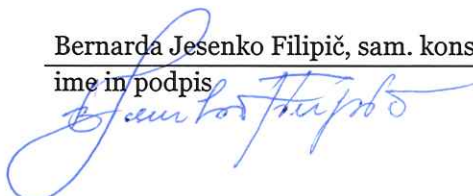 Bernarda Jesenko Filipič, sam. kons
ime in podpis